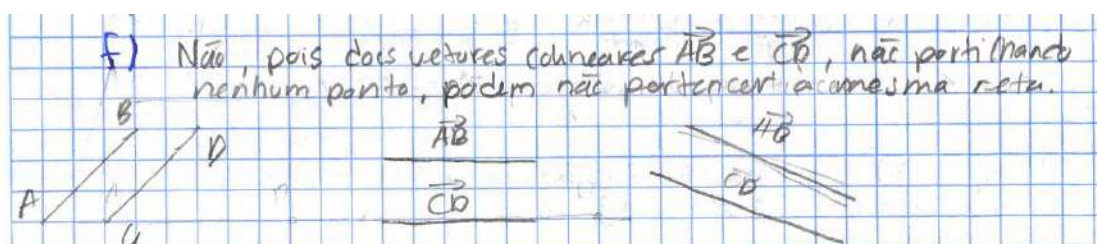 f) Não, pois dois vetores colineares AB e CD, não partilhando
nenhum ponto, podem não pertencer à mesma reta.
B
D
A
C
AB
CD
AB
CD